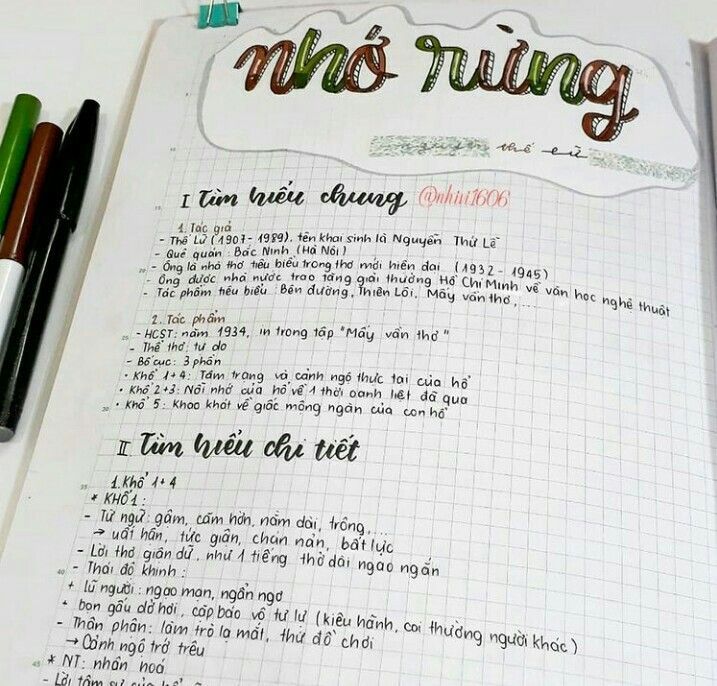 nhớ rừng
thế lữ
I Tìm hiểu chung @nhivi1606
1. Tác giả
- Thế Lữ (1907 - 1989), tên khai sinh là Nguyễn Thứ Lễ
- Quê quán: Bắc Ninh (Hà Nội)
- Ông là nhà thơ tiêu biểu trong thơ mới hiện đại (1932 - 1945)
- Ông được nhà nước trao tặng giải thưởng Hồ Chí Minh về văn học nghệ thuật
- Tác phẩm tiêu biểu: Bên đường, Thiên Lôi, Mấy vần thơ, ...
2. Tác phẩm
- HCST: năm 1934, in trong tập "Mấy vần thơ"
- Thể thơ: tự do
- Bố cục: 3 phần
• Khổ 1+4: Tâm trạng và cảnh ngộ thực tại của hổ
• Khổ 2+3: Nỗi nhớ của hổ về 1 thời oanh liệt đã qua
• Khổ 5: Khao khát về giấc mộng ngàn của con hổ
II Tìm hiểu chi tiết
1. Khổ 1+4
* KHỔ 1:
- Từ ngữ: gậm, căm hờn, nằm dài, trông,...
→ uất hận, tức giận, chán nản, bất lực
- Lời thơ giận dữ, như 1 tiếng thở dài ngao ngán
- Thái độ khinh:
+ lũ người: ngạo mạn, ngẩn ngơ
+ bọn gấu dở hơi, cặp báo vô tư lự (kiêu hãnh, coi thường người khác)
- Thân phận: làm trò lạ mắt, thứ đồ chơi
→ Cảnh ngộ trớ trêu
* NT: nhân hoá
- Lời tâm sự của hổ